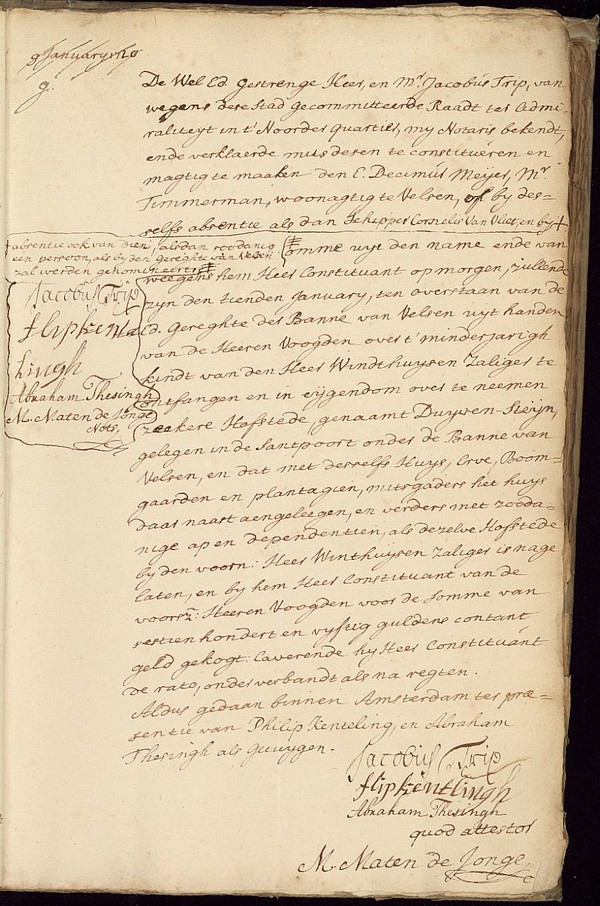 9 January 1719
9.
De Wel Ed Gestrenge Heer, en Mr. Jacobus Trip, van
wegens dese Stad gecommitteerde Raadt ter Admi-
raliteyt in 't Noorder quartier, my Notaris bekendt,
ende verklaerde mits desen te constitueren en
magtig te maaken den E. Decimus Meijer, Mr.
Timmerman, woonagtig te Velsen, of by des-
selfs absentie als dan Schipper Cornelis Van Vliet, en by
absentie ook van dien, alsdan soodanig
een persoon, als by den gereghte van Velsen
zal werden genomineert
omme uyt den name ende van
weegens hem Heer Constituant op morgen, zullende
zyn den tienden January, ten overstaan van de
Ed. Gereghte der Banne van Velsen uyt handen
van de Heeren Voogden over 't minderjarigh
kindt van den Heer Windthuysen Zaliger te
ontfangen en in eijgendom over te neemen
zeekere Hofstede, genaamt Duyven-Steijn,
gelegen in de Santpoort onder de Banne van
Velsen, en dat met desselfs Huys, Erve, Boom-
gaarden en plantagien, mitsgaders het huys
daar naast aengeleegen, en verders met zooda-
nige ap en dependentien, als dezelve Hofstede
by den voorn: Heer Winthuysen Zaliger is nage
laten, en by hem Heer Constituant van de
voorsz: Heeren Voogden voor de Somme van
sestien hondert en vyftig guldens contant
geld gekogt: Caverende hy Heer Constituant
de rato, onder verbandt als na regten.
Aldus gedaan binnen Amsterdam ter præ-
sentie van Philip Kenteling, en Abraham
Thesingh als getuygen.
Jacobus Trip
flip kentlingh
Abraham Thesingh
M. Maten de Jonge
Nots.
Jacobus Trip
flip kentlingh
Abraham Thesingh
quod attestor
M. Maten de Jonge